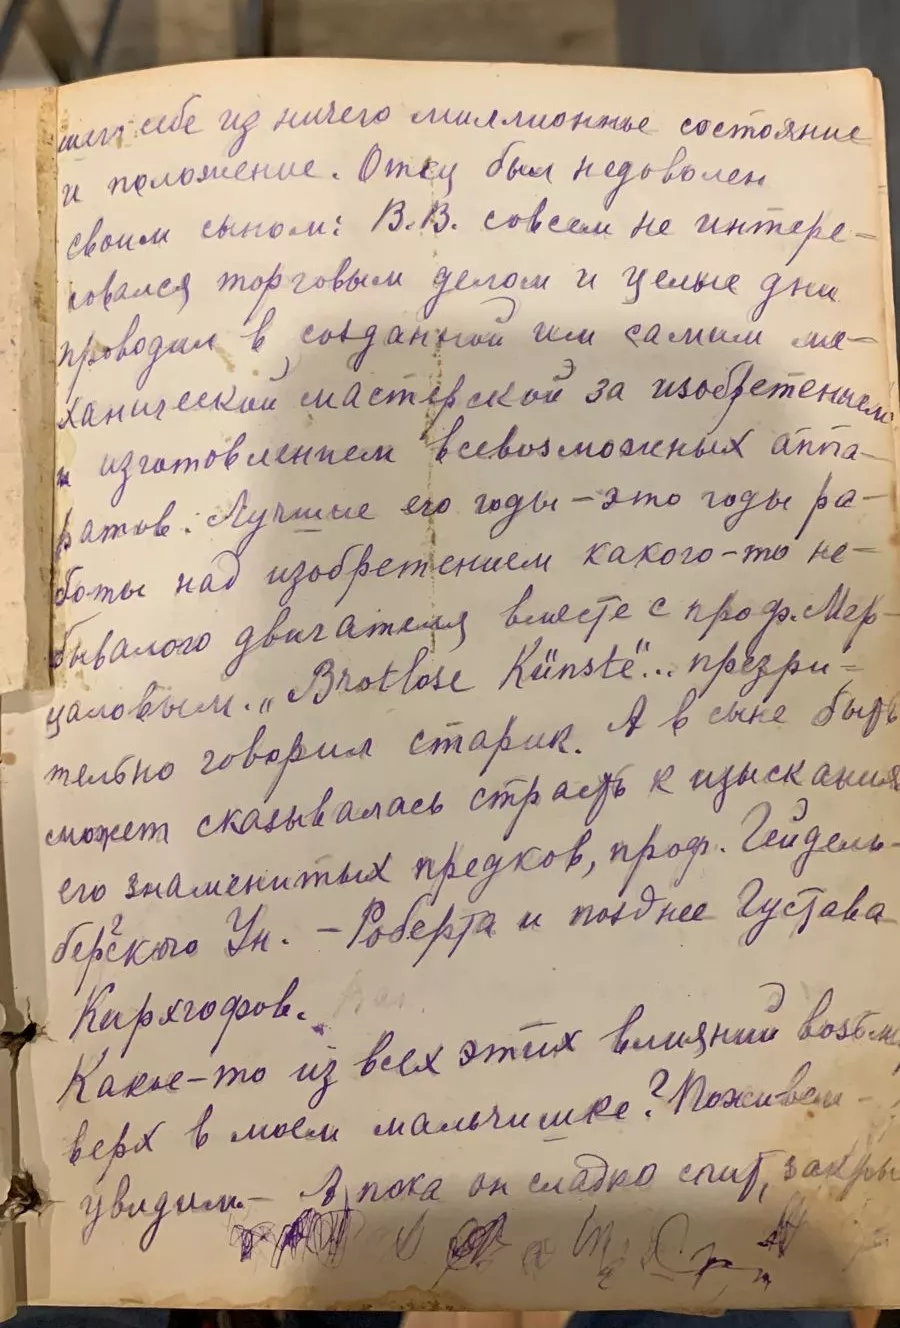 себе из ничего миллионное состояние
и положение. Отец был недоволен
своим сыном: В.В. совсем не интере-
совался торговым делом и целые дни
проводил в созданной им самим ме-
ханической мастерской за изобретением
и изготовлением всевозможных аппа-
ратов. Лучшие его годы – это годы ра-
боты над изобретением какого-то не-
бывалого двигателя вместе с проф. Мер-
цаловым. „Brotlose Künste"... презри-
тельно говорил старик. А в сыне быть
может сказывалась страсть к изысканиям
его знаменитых предков, проф. Гейдель-
бергского Ун. – Роберта и позднее Густава
Кирхгофов.
Какое-то из всех этих влияний возьмет
верх в моем мальчишке? Поживем –
увидим. – А пока он сладко спит, закры